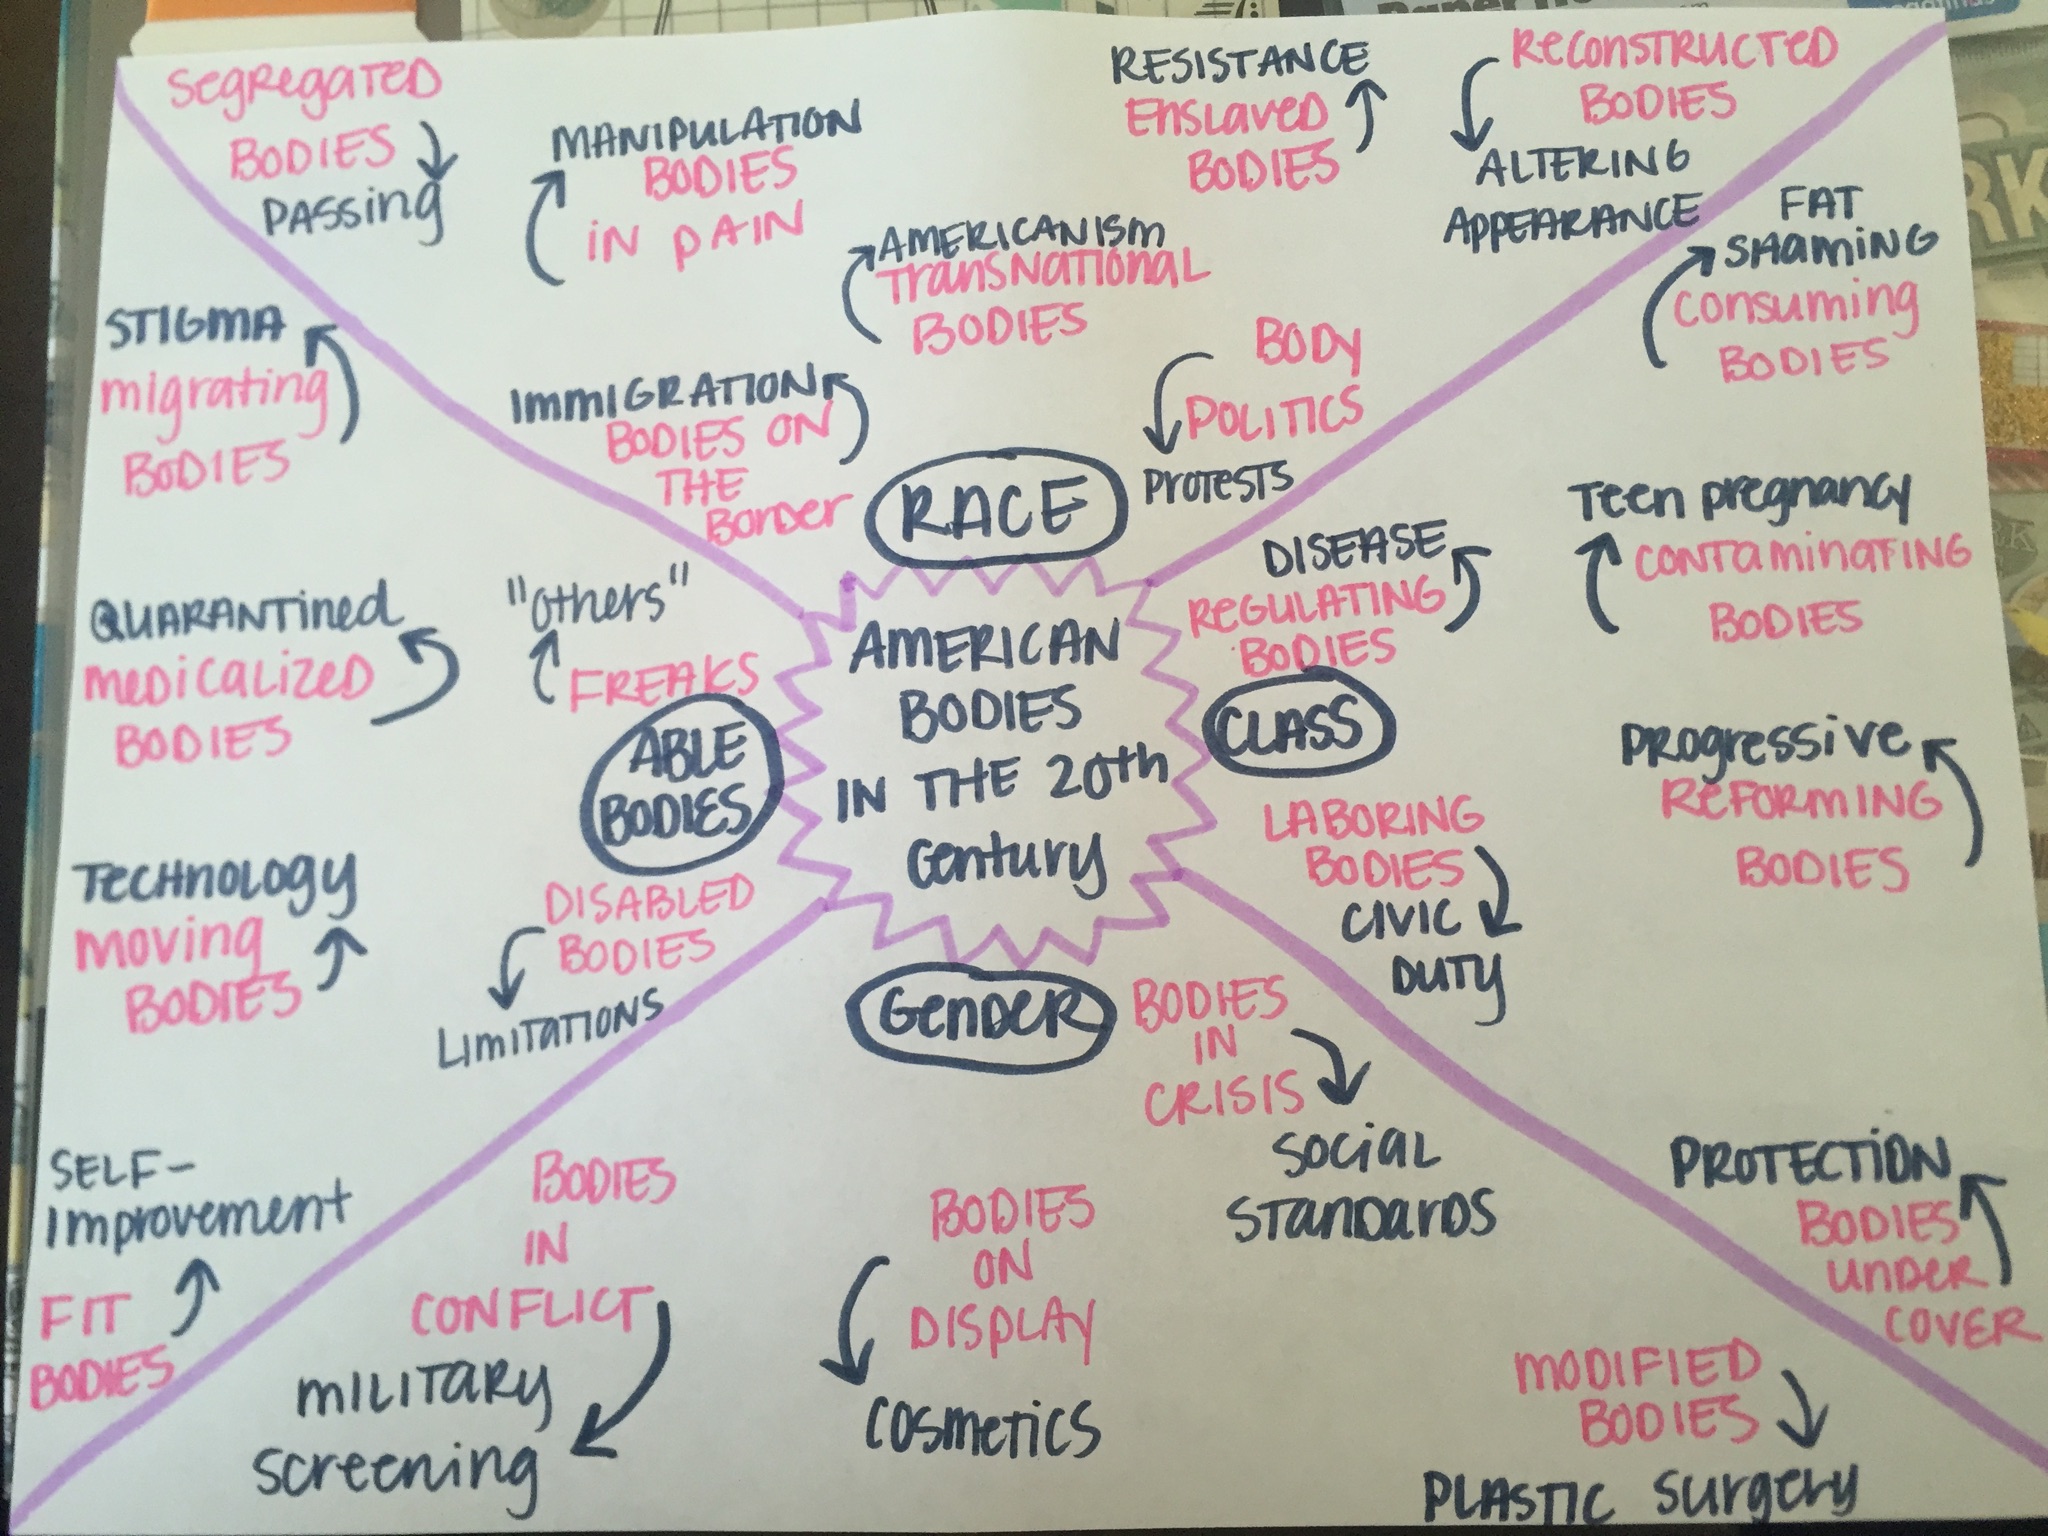 AMERICAN
BODIES
IN THE 20th
century
RACE
Segregated
BODIES
PASSing
MANIPULATION
BODIES
IN PAIN
AMERICANISM
TransNATIONAL
BODIES
IMMIGRATION
BODIES ON
THE
Border
RESISTANCE
Enslaved
BODIES
ReconSTRUCTED
BODIES
ALTERING
APPEARANCE
BODY
POLITICS
Protests
CLASS
FAT
SHAMING
Consuming
BODIES
Teen pregnancy
CONTaminATING
BODIES
DISEASE
REGULATING
BODIES
Progressive
REFORMING
BODIES
LABORING
BODIES
CIVIC
DUTY
PROTECTION
BODIES
UNDER
COVER
GenDER
BODIES
IN
CRISIS
SOCIAL
STANDARDS
BODIES
ON
DISPLAY
COSMETICS
BODIES
IN
CONFLICT
MILITARY
screening
MODIFIED
BODIES
PLASTIC surgery
ABLE
BODIES
STIGMA
migrating
BODIES
QUARANTined
medicalized
BODIES
"others"
FREAKS
TECHNOLOGY
moving
BODIES
DISABLED
BODIES
LIMITATIONS
SELF-
Improvement
FIT
BODIES